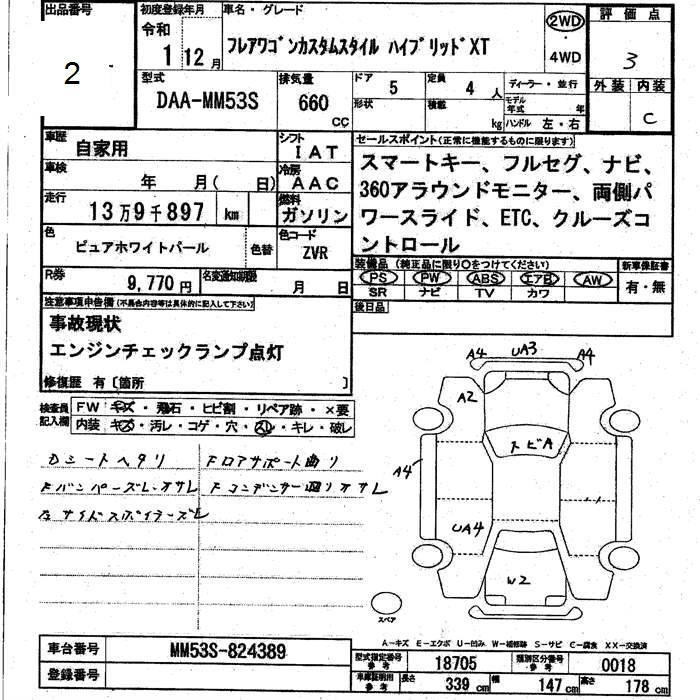 出品番号
2
初度登録年月
令和
1 12月
車名・グレード
フレアワゴンカスタムスタイル ハイブリッドXT
2WD
・
4WD
評価点
3
外装 内装
C
型式
DAA-MM53S
排気量
660
CC
ドア
5
定員
4 人
形状
積載
kg
ディーラー・並行
モデル
年式
年
ハンドル 左・右
車歴
自家用
シフト
IAT
車検
年 月( 日)
冷房
AAC
走行
13万9千897 km
燃料
ガソリン
色
ピュアホワイトパール
色替
色コード
ZVR
R券
9,770円
名変通知期限
月 日
セールスポイント(正常に機能するものに限ります)
スマートキー、フルセグ、ナビ、
360アラウンドモニター、両側パ
ワースライド、ETC、クルーズコ
ントロール
装備品 (純正品に限り○をつけてください)
新車保証書
PS PW ABS エアB AW
SR ナビ TV カワ
有・無
後日品
注意事項申告欄(不具合内容等は具体的に記入して下さい)
事故現状
エンジンチェックランプ点灯
修復歴 有〔箇所 〕
検査員
記入欄
FW キズ・飛石・ヒビ割・リペア跡・×要
内装 キズ・汚レ・コゲ・穴・スレ・キレ・破レ
Dシートヘタリ
Fロアサポート曲り
Fバンパーズレオサレ
Fコンデンサー曲りオサレ
左サイドスポイラーズレ
A4
UA3
A4
A2
トビA
A4
UA4
W2
スペア
A－キズ E－エクボ U－凹み W－補修跡 S－サビ C－腐食 XX－交換済
車台番号
MM53S-824389
登録番号
型式指定番号
参考
18705
類別区分番号
参考
0018
車庫証明用
参考
長さ
339 cm
幅
147 cm
高さ
178 cm